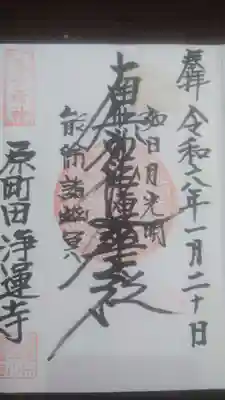 奉拝
令和六年一月二十日
如日月光明
南無妙法蓮華経
能除諸幽冥
原町田浄運寺